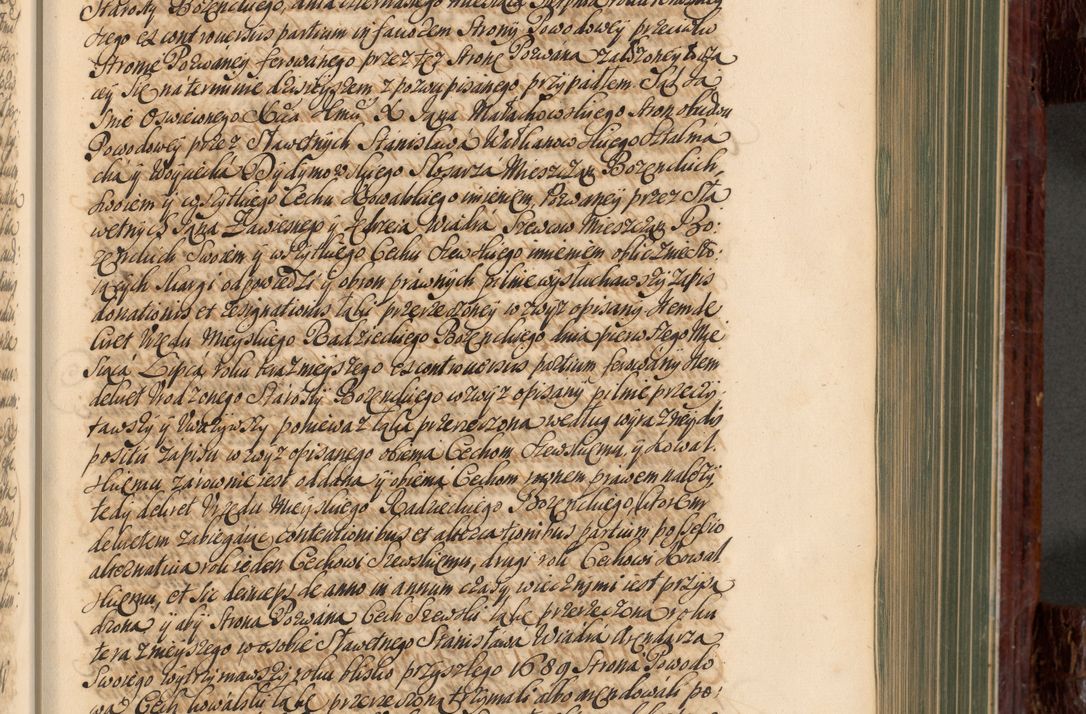 Starosty Bozenckiego, dnia czternastego miesiąca Sierpnia roku terazniey
szego ex controversiis partium in favorem Strony Powodowey przeciwko
Stronie Pozwaney ferowanego przez też Stronę Pozwana założoney
cey się na terminie dzisieyszym z pozwu pisanego przypadłem. Sąd Ja
Smc Oswieconego Xcia Jmci X Jana Małachowskiego Stron obudwu
Powodowey przez Sławetnych Stanisława Wachanowskiego Stalma
cha y Woyciecha Dydymowskiego Slosarza Mieszczan Bozenckich,
swoiem y wszytkiego Cechu Kowalskiego imieniem, Pozwaney przez Sła
wetnych Jana Zawienego y Jędrzeia Wiadra Szewcow Mieszczan Bo:
zenckich Swoiem y wszytkiego Cechu Szewskiego imieniem oblicznie sto:
iących skargi odpowiedzi y obron prawnych pilnie wysłuchawszy zapis
donationis et resignationis łąki przerzeczoney wzwyz opisany Item de
kret Urzedu Mieyskiego Radzieckiego Bozenckiego dnia pierwszego Mie
siąca Lipca roku teraznieyszego ex controversiis partium ferowany Item
dekret Urodzonego Starosty Bozenckiego wzwyz opisany pilnie przeczy
tawszy y Uwazywszy poniewaz łąka przerzeczona według wyrazney dis
positii zapisu wzwyz opisanego obiema Cechom Szewskiemu, y Kowal
skiemu zarownie iest oddana y obiema Cechom rownem prawem nalezy
tedy dekret Urzedu Mieyskiego Radzieckiego Bozenckiego, ktorem
dekretem zabiegaiąc contentionibus et altercationibus partium possessio
alternativa rok ieden Cechowi Szewskiemu, drugi rok Cechowi Kowal
skiemu, et sic deinceps de anno in annum czasy wiecznymi iest przysą
dzona y aby Strona Pozwana Cech Szewski łąkę przerzeczona roku
teraznieyszego w osobie Sławetnego Stanisława Wiadra Arendarza
Swoiego wytrzymawszy roku blisko przyszłego 1689 Strona Powodo
wa Cech kowalski łąkę przerzeczoną trzymali albo arendowali po: